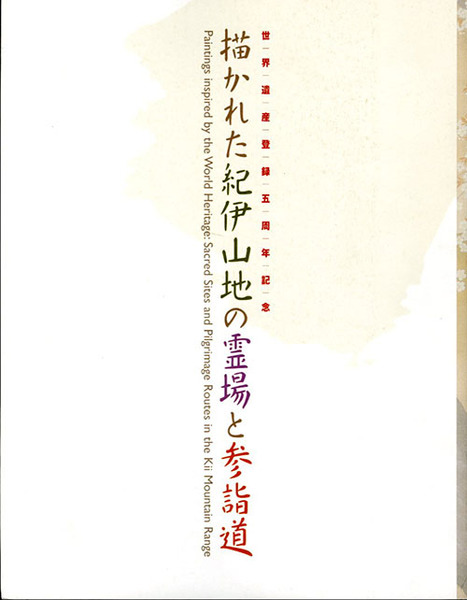 世界遺産登録五周年記念
描かれた紀伊山地の霊場と参詣道
Paintings inspired by the World Heritage: Sacred Sites and Pilgrimage Routes in the Kii Mountain Range